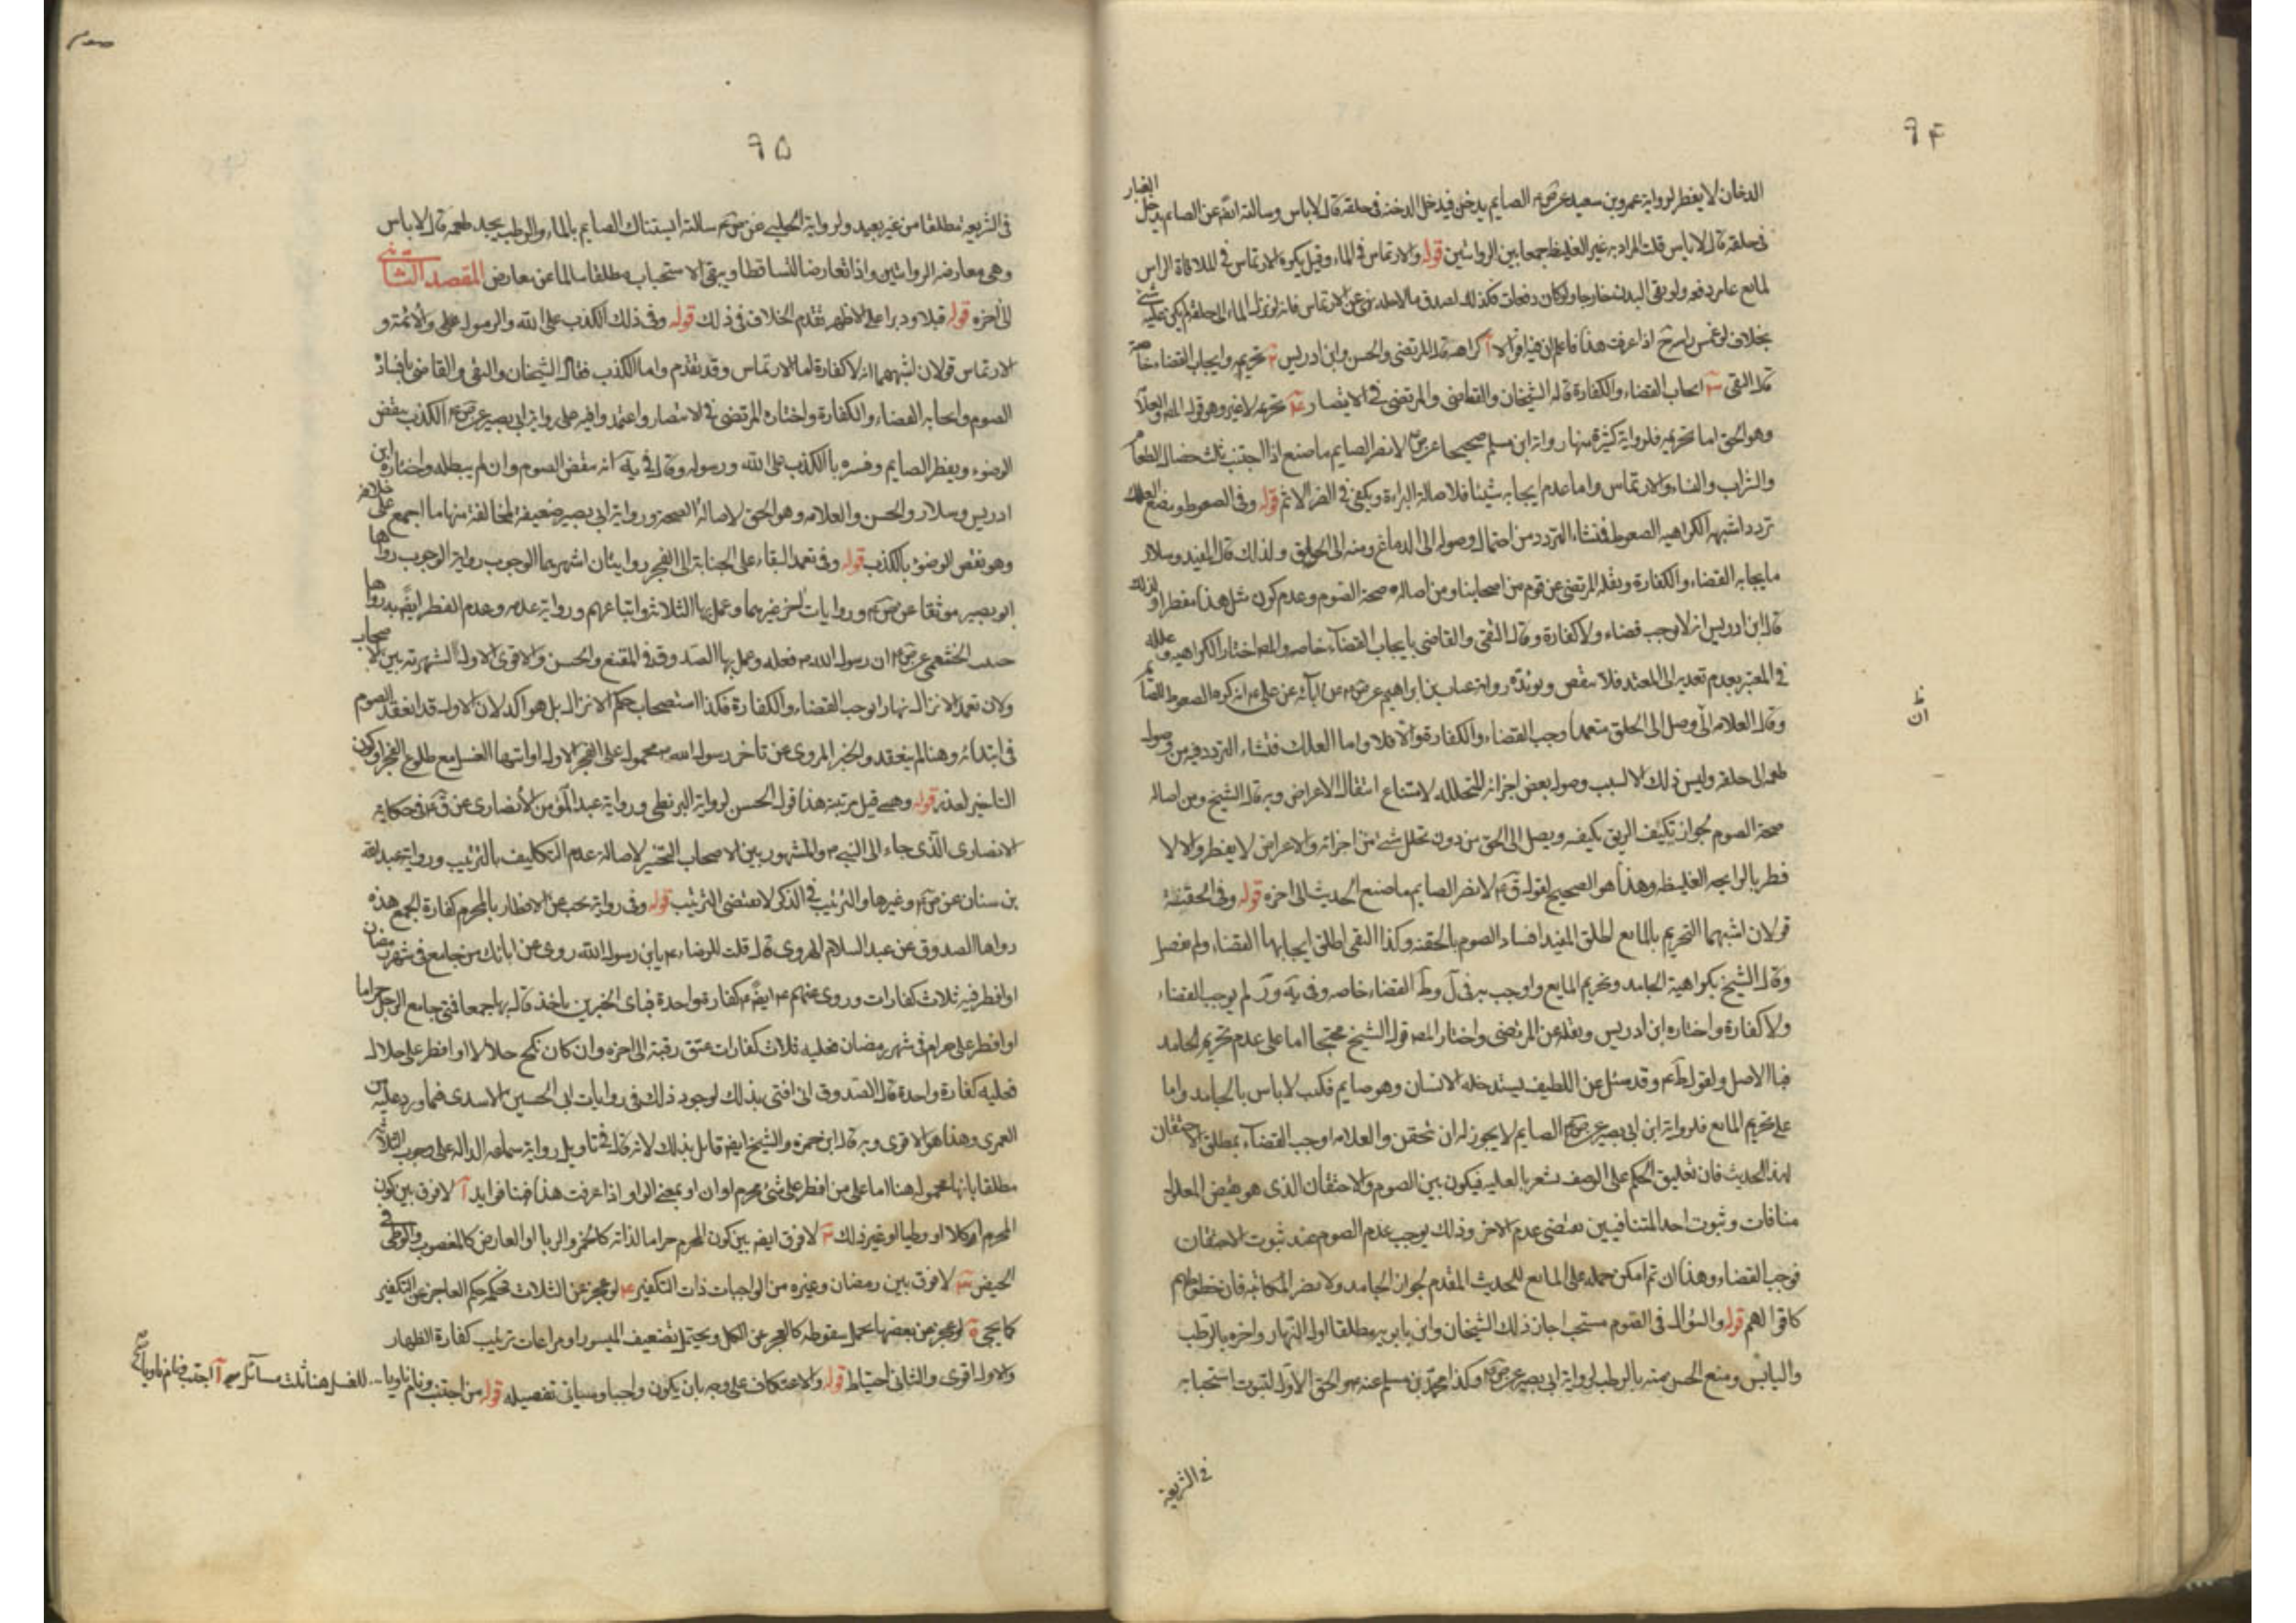 ٩٤
الدخان لا يفطر لرواية عمرو بن سعيد عن ض م الصايم يدخن فيدخل الدخنة فى حلقه قال لا باس وسالته ايضً عن الصايم يدخل الغبار
فى حلقه قال لا باس قلت المراد به غير الغليظ جمعا بين الروايتين قوله والارتماس فى الماء وقيل يكره الارتماس فى الملاقاة الراس
لمايع عليه دفعه ولو بقى البدن خارجا ولو كان دفعات فكذلك لصدق مالاحله نهى عن الارتماس فانه لو نزل الماء الى حلقه لم يكن عليه شئ
بخلاف لو غمس راسه اذا عرفت هذا فاعلم ان هنا اقوالا آ كراهه قاله المرتضى والحسن وابن ادريس ٢ تحريمه وايجاب القضاء خاصة
قاله التقى ٣ ايجاب القضاء والكفارة قاله الشيخان والقاضى والمرتضى فى الانتصار ٤ تحريمه لا غير وهو قول المصه والعلامة
وهو الحق اما تحريمه فلرواية كثيرة منها رواية ابن مسلم صحيحا عن ق م لا يضر الصايم ما صنع اذا اجتنب ثلث خصال الطعام
والشراب والنساء والارتماس واما عدم ايجابه شيئا فلاصالة البراءة ويكفى فى الضرر الاثم قوله وفى الصعوط ومضغ العلك
تردد اشبهه الكراهيه الصعوط فمنشاء التردد من احتمال وصوله الى الدماغ ومنه الى الحلق ولذلك قال المفيد وسلار
بايجابه القضاء والكفارة ونقله المرتضى عن قوم من اصحابنا ومن اصاله صحة الصوم وعدم كون مثل هذا مفطرا ولذلك
قال ابن ادريس انه لا يوجب قضاء ولا كفارة وقال التقى والقاضى بايجاب القضاء خاصه والمصه اختار الكراهيه وعلله
فى المعتبر بعدم تعديه الى المعتد فلا ينقض ويؤيده رواية غياث بن ابراهيم عن ض م عن ابائه عن على م انه كره الصعوط للصائم
وقال العلامه ان وصل الى الحلق متعمدا وجب القضاء والكفارة والا فلا واما العلك فمنشاء التردد فيه من وصول
طعمه الى حلقه وليس ذلك الا لسبب وصول بعض اجزائه المتحلله لامتناع انتقال الاعراض وبه قال الشيخ ومن اصالة
صحة الصوم لجواز تكيف الريق بكيفه ويصل الى الحلق من دون تحلل شئ من اجزائه والاعراض لا يفطر والا لا
فطر بالرايحه الغليظه وهذا هو الصحيح لقوله ق م لا يضر الصايم ما صنع الحديث الى اخره قوله وفى الحقنة
قولان اشبههما التحريم بالمايع اطلق المفيد افساد الصوم بالحقنه وكذا التقى اطلق ايجابها القضاء ولم يفصل
وقال الشيخ بكراهية الجامد وتحريم المايع واوجب به فى ل وط القضاء خاصه وفى يه ور لم يوجب القضاء
ولا كفارة واختاره ابن ادريس ونقله عن المرتضى واختار المصه قول الشيخ محتجا اما على عدم تحريم الجامد
فبالاصل ولقوله م وقد سئل عن اللطيف يستدخله الانسان وهو صايم فكتب لا باس بالجامد واما
على تحريم المايع فلرواية ابن ابى بصير عن ض م الصايم لا يجوز له ان يحتقن والعلامه اوجب القضاء بمطلق الاحتقان
لهذا الحديث فان تعليق الحكم على الوصف يشعر بالعليه فيكون بين الصوم والاحتقان الذى هو نقيض المعلول
منافات وثبوت احد المتنافيين يقتضى عدم الاخر وذلك يوجب عدم الصوم عند ثبوت الاحتقان
فوجب القضاء وهذا ان تم امكن حمله على المايع للحديث المتقدم لجواز الجامد ولا يضر المكاتبه فان خطوطهم
كاقوالهم قوله والسؤاك فى الصوم مستحب اجاز ذلك الشيخان وابن بابويه مطلقا اول النهار واخره بالرطب
واليابس ومنع الحسن منه بالرطب لرواية ابى بصير عن ض م وكذا محمد بن مسلم عنه م والحق الاول لثبوت استحبابه
فى الشريعة
ظ
ان
٩٥
فى الشريعة مطلقا من غير بعيد ولرواية الحلبى عن ض م سالته ايستاك الصايم بالماء والرطب يجد طعمه قال لا باس
وهى معارضه الروايتين واذا تعارضا تساقطا ويبقى الاستحباب مطلقا سالما عن معارض المقصد الثانى
الى اخره قوله قبلا ودبرا على الاظهر تقدم الخلاف فى ذلك قوله وفى ذلك الكذب على الله والرسول على والائمة و
الارتماس قولان اشبههما انه لا كفارة اما الارتماس وقد تقدم واما الكذب فقال الشيخان والتقى والقاضى بافساد
الصوم وايجابه القضاء والكفارة واختاره المرتضى فى الانتصار واعتمد وافيه على رواية ابى بصير عن ض م الكذب ينقض
الوضوء ويفطر الصايم وفسره بالكذب على الله ورسوله وقال فى يه انه ينقض الصوم وان لم يبطله واختاره ابن
ادريس وسلار والحسن والعلامه وهو الحق لاصالة الصحة ورواية ابى بصير ضعيفة لمخالفة منها ما اجمع على خلافه
وهو نقض الوضوء بالكذب قوله وفى تعمد البقاء على الجنابة الى الفجر روايتان اشهرهما الوجوب رواية الوجوب رواها
ابو بصير موثقا عن ض م وروايات اخر غيرهما وعمل بها الثلاثة واتباعهم ورواية عدمه وعدم الفطر ايضً به رواها
حبيب الخثعمى عن ض م ان رسول الله م فعله وعمل بها الصدوق فى المقنع والحسن والاقوى الاول الشهرته بين الاصحاب
ولان تعمد الانزال نهارا يوجب القضاء والكفارة فكذا استصحاب حكم الانزال بل هو اكد لان الاول قد انعقد الصوم
فى ابتدائه وهنا لم ينعقد والخبر المروى عن تاخر رسول الله م محمول على الفجر الاول او انتهاء الغسل مع طلوع الفجر او كون
التاخير لعذر قوله وهى قيل مرتبة هذا قول الحسن لرواية البزنطى ورواية عبد المؤمن الانصارى عن ق م فى حكاية
الانصارى الذى جاء الى النبى م والمشهور بين الاصحاب التخيير لاصالة عدم التكليف بالترتيب ورواية عبد الله
بن سنان عن ض م وغيرها والترتيب فى الذكر لا يقتضى الترتيب قوله وفى رواية يجب عن الافطار بالمحرم كفارة الجمع هذه
رواها الصدوق عن عبد السلام الهروى قال قلت للرضا م يابن رسول الله روى عن ابائك من جامع فى شهر رمضان
او افطر فيه ثلاث كفارات وروى عنهم م ايضً م كفارة واحدة فباى الخبرين ناخذ قال بها جمعا فمتى جامع الرجل حراما
او افطر على حرام فى شهر رمضان فعليه ثلاث كفارات عتق رقبة الى اخره وان كان نكح حلالا او افطر على حلال
فعليه كفارة واحدة قال الصدوق انى افتى بذلك لوجود ذلك فى روايات ابى الحسين الاسدى فيما ورد عليه من
العمرى وهذا هو الاقوى وبه قال ابن حمزه والشيخ ايضه قايل بذلك لانه قال فى تاويل رواية سماعه الدالة على وجوب الثلاثة
مطلقا بانها محمول هنا اما على من افطر على شئ محرم او ان او بمعنى الواو اذا عرفت هذا فهنا فوايد آ لا فرق بين كون
المحرم اكلا او وطيا او غير ذلك ٢ لا فرق ايضه بين كون المحرم حراما لذاته كالخمر والربا او العارض كالمغصوب والوطى فى
الحيض ٣ لا فرق بين رمضان وغيره من الواجبات ذات التكفير ٤ لو عجز عن الثلاث فحكمه حكم العاجز عن التكفير
كما يجى ٥ لو عجز عن بعضها يحمل سقوطه كالعجز عن الكل ويحتمل تضعيف الميسور او مراعات ترتيب كفارة الظهار
والاول اقوى والثانى احتياط قوله والاعتكاف على وجه بان يكون واجبا وسياتى تفصيله قوله من اجتنب ونام ناويا
للغسل هنا ثلث مسائل آ اجتنب فنام ناويا